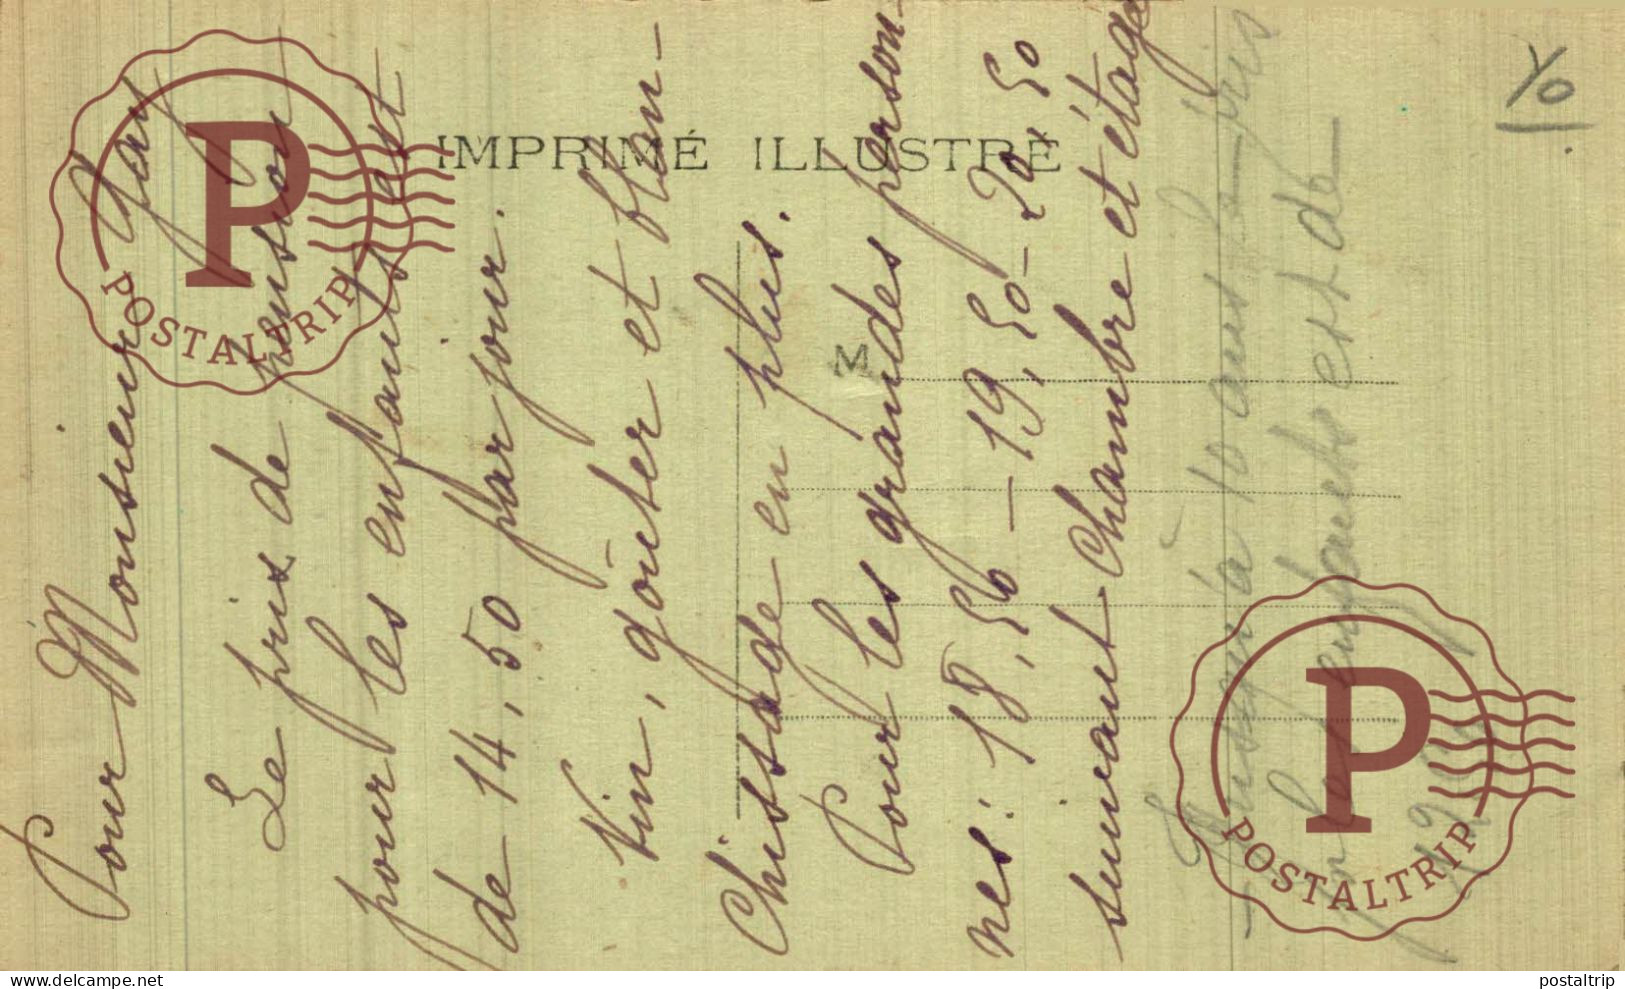 IMPRIMÉ ILLUSTRÉ
M
Pour Monsieur Gay
Le prix de pension
pour les enfants est
de 14,50 par jour.
Vin, goûter et blan-
chissage en plus.
Pour les grandes person-
nes: 18,50 – 19,50 – 20,50
suivant chambre et étage
Jusqu'à 10 ans le prix
enfants est de
Yo
POSTALTRIP
POSTALTRIP
Delcampe.net
postaltrip